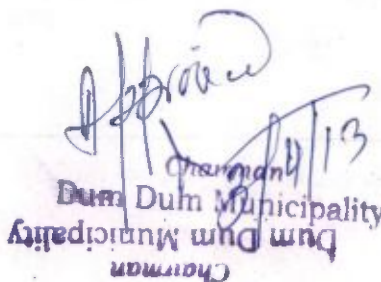 Approved
Chairman
Dum Dum Municipality
Dum Dum Municipality
Chairman